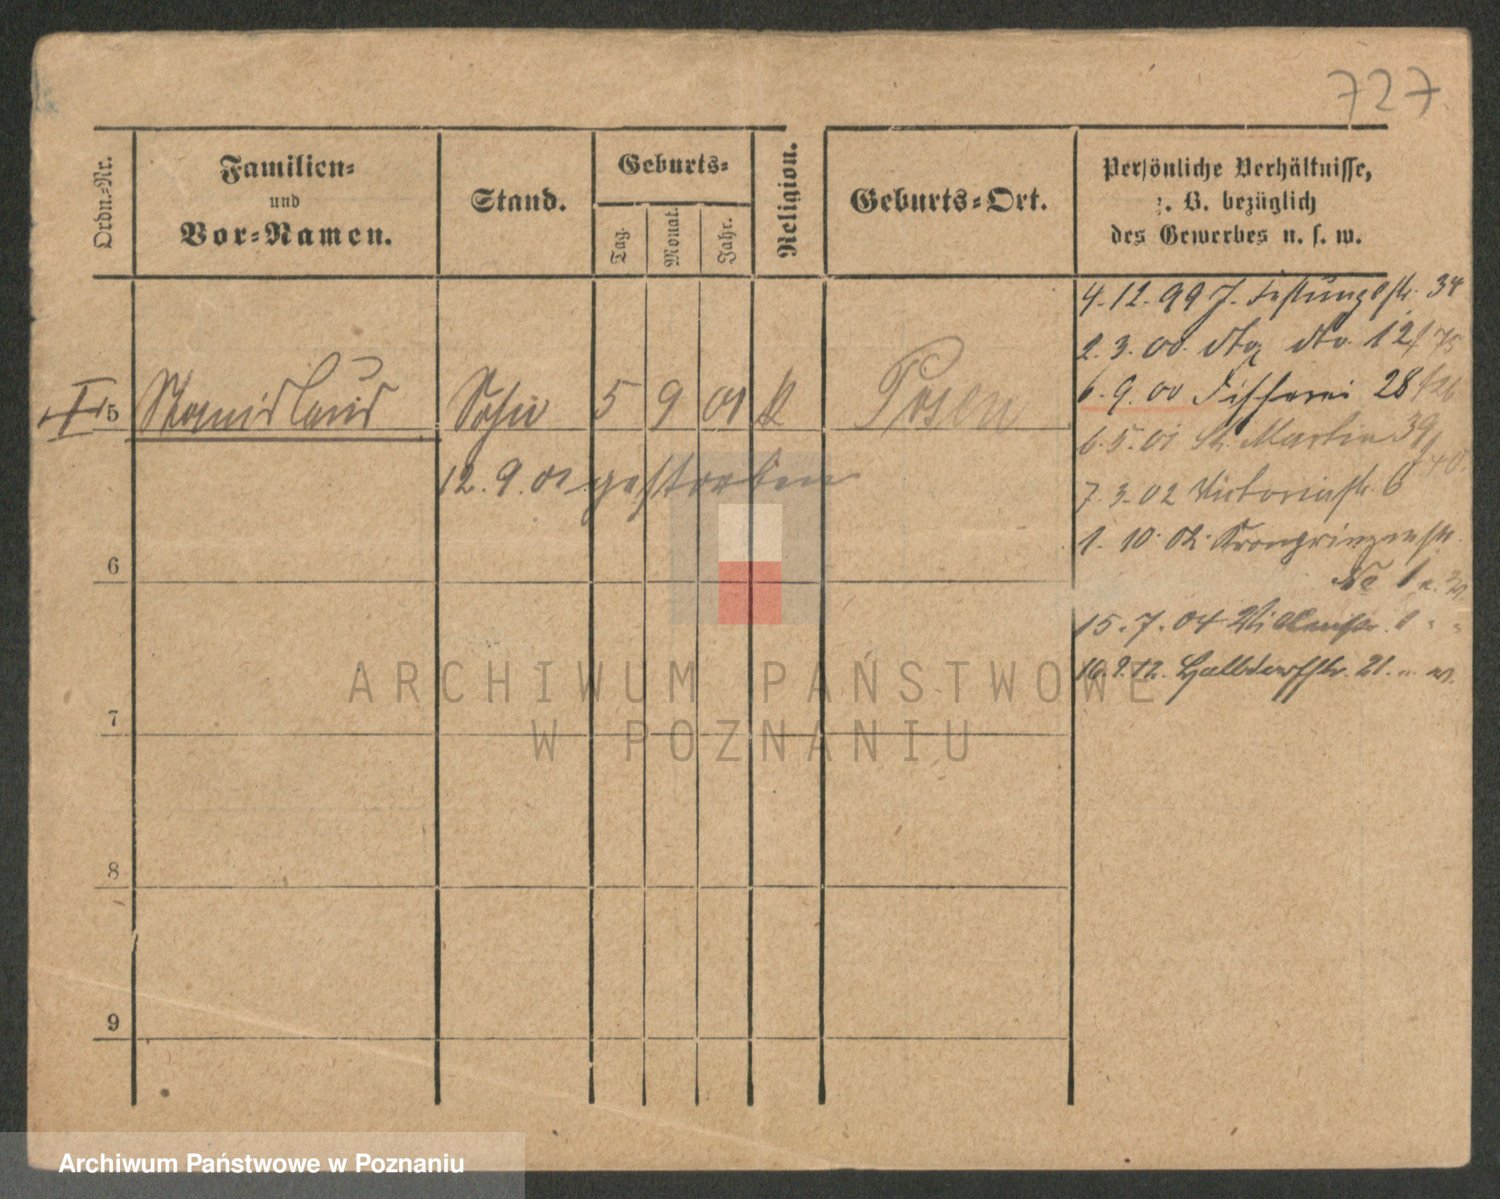 727
Ordn.-Nr.
Familien-
und
Vor-Namen.
Stand.
Geburts-
Tag.
Monat.
Jahr.
Religion.
Geburts-Ort.
Persönliche Verhältnisse,
z. B. bezüglich
des Gewerbes u. s. w.
4. 12. 99 Festungsstr. 34
2. 3. 00 12/75
6. 9. 00 Fischerei 28
I 5 Stanislaus Sohn 5 9 01 k Posen
6. 5. 01 St. Martin 39
12. 9. 01 gestorben
7. 3. 02 Victoriastr. 6
1. 10. 02 Kronprinzenstr.
No 1
6
15. 7. 04 1
16. 9. 12. Halbdorfstr. 21.
7
8
9
ARCHIWUM PAŃSTWOWE
W POZNANIU
Archiwum Państwowe w Poznaniu